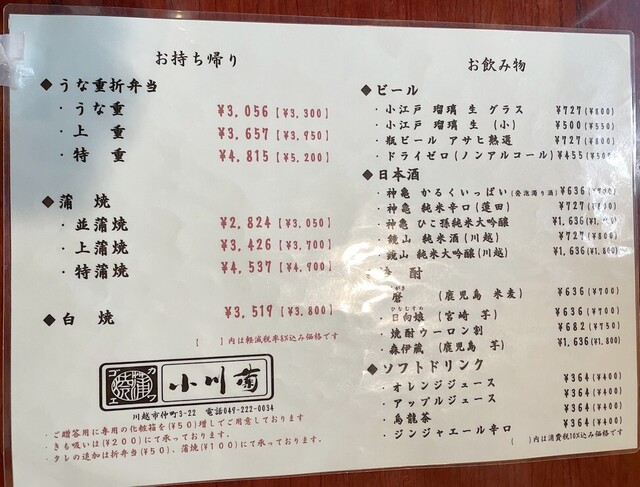 お持ち帰り
◆うな重折弁当
・うな重 ¥3,056【¥3,300】
・上 重 ¥3,657【¥3,950】
・特 重 ¥4,815【¥5,200】
◆蒲 焼
・並蒲焼 ¥2,824【¥3,050】
・上蒲焼 ¥3,426【¥3,700】
・特蒲焼 ¥4,537【¥4,900】
◆白 焼 ¥3,519【¥3,800】
【 】内は軽減税率8%込み価格です
小川菊
川越市仲町3-22 電話049-222-0034
・ご贈答用に専用の化粧箱を(¥50)増しでご用意しております
・きも吸いは(¥200)にて承っております。
・タレの追加は折弁当(¥50)、蒲焼(¥100)にて承っております。
お飲み物
◆ビール
・小江戸 瑠璃 生 グラス ¥727(¥800)
・小江戸 瑠璃 生 (小) ¥500(¥550)
・瓶ビール アサヒ熟選 ¥727(¥800)
・ドライゼロ(ノンアルコール) ¥455(¥500
◆日本酒
・神亀 かるくいっぱい(発泡濁り酒) ¥636
・神亀 純米辛口(蓮田) ¥727
・神亀 ひこ孫純米大吟醸 ¥1,636
・鏡山 純米酒(川越) ¥727(¥800)
・鏡山 純米大吟醸(川越) ¥1,636(¥1,800)
酎
暦 (鹿児島 米麦) ¥636(¥700)
・日向娘(宮崎 芋) ¥636(¥700)
ひなむすめ
・焼酎ウーロン割 ¥682(¥750)
・森伊蔵 (鹿児島 芋) ¥1,636(¥1,800)
◆ソフトドリンク
・オレンジジュース ¥364(¥400)
・アップルジュース ¥364(¥400)
・烏龍茶 ¥364(¥400)
・ジンジャエール辛口 ¥364(¥400)
( )内は消費税10%込み価格です